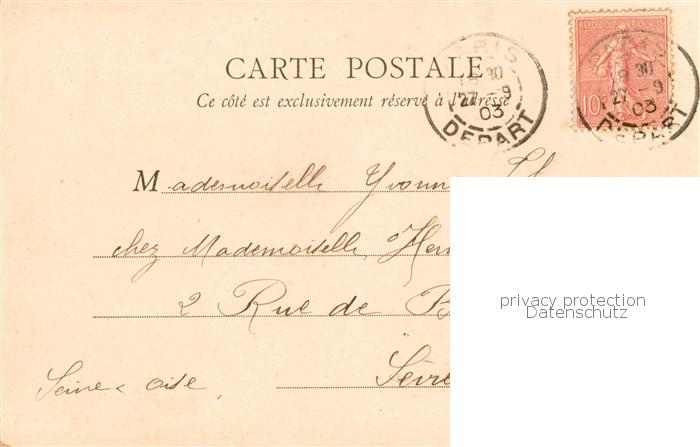 CARTE POSTALE
Ce côté est exclusivement réservé à l'adresse
PARIS
30
27 - 9
03
DEPART
REPUBLIQUE FRANÇAISE
10
PARIS
30
27 - 9
03
DEPART
Mademoiselle Yvonn
chez Mademoiselle Hen
2 Rue de B
Sèvre
Seine & Oise
privacy protection
Datenschutz